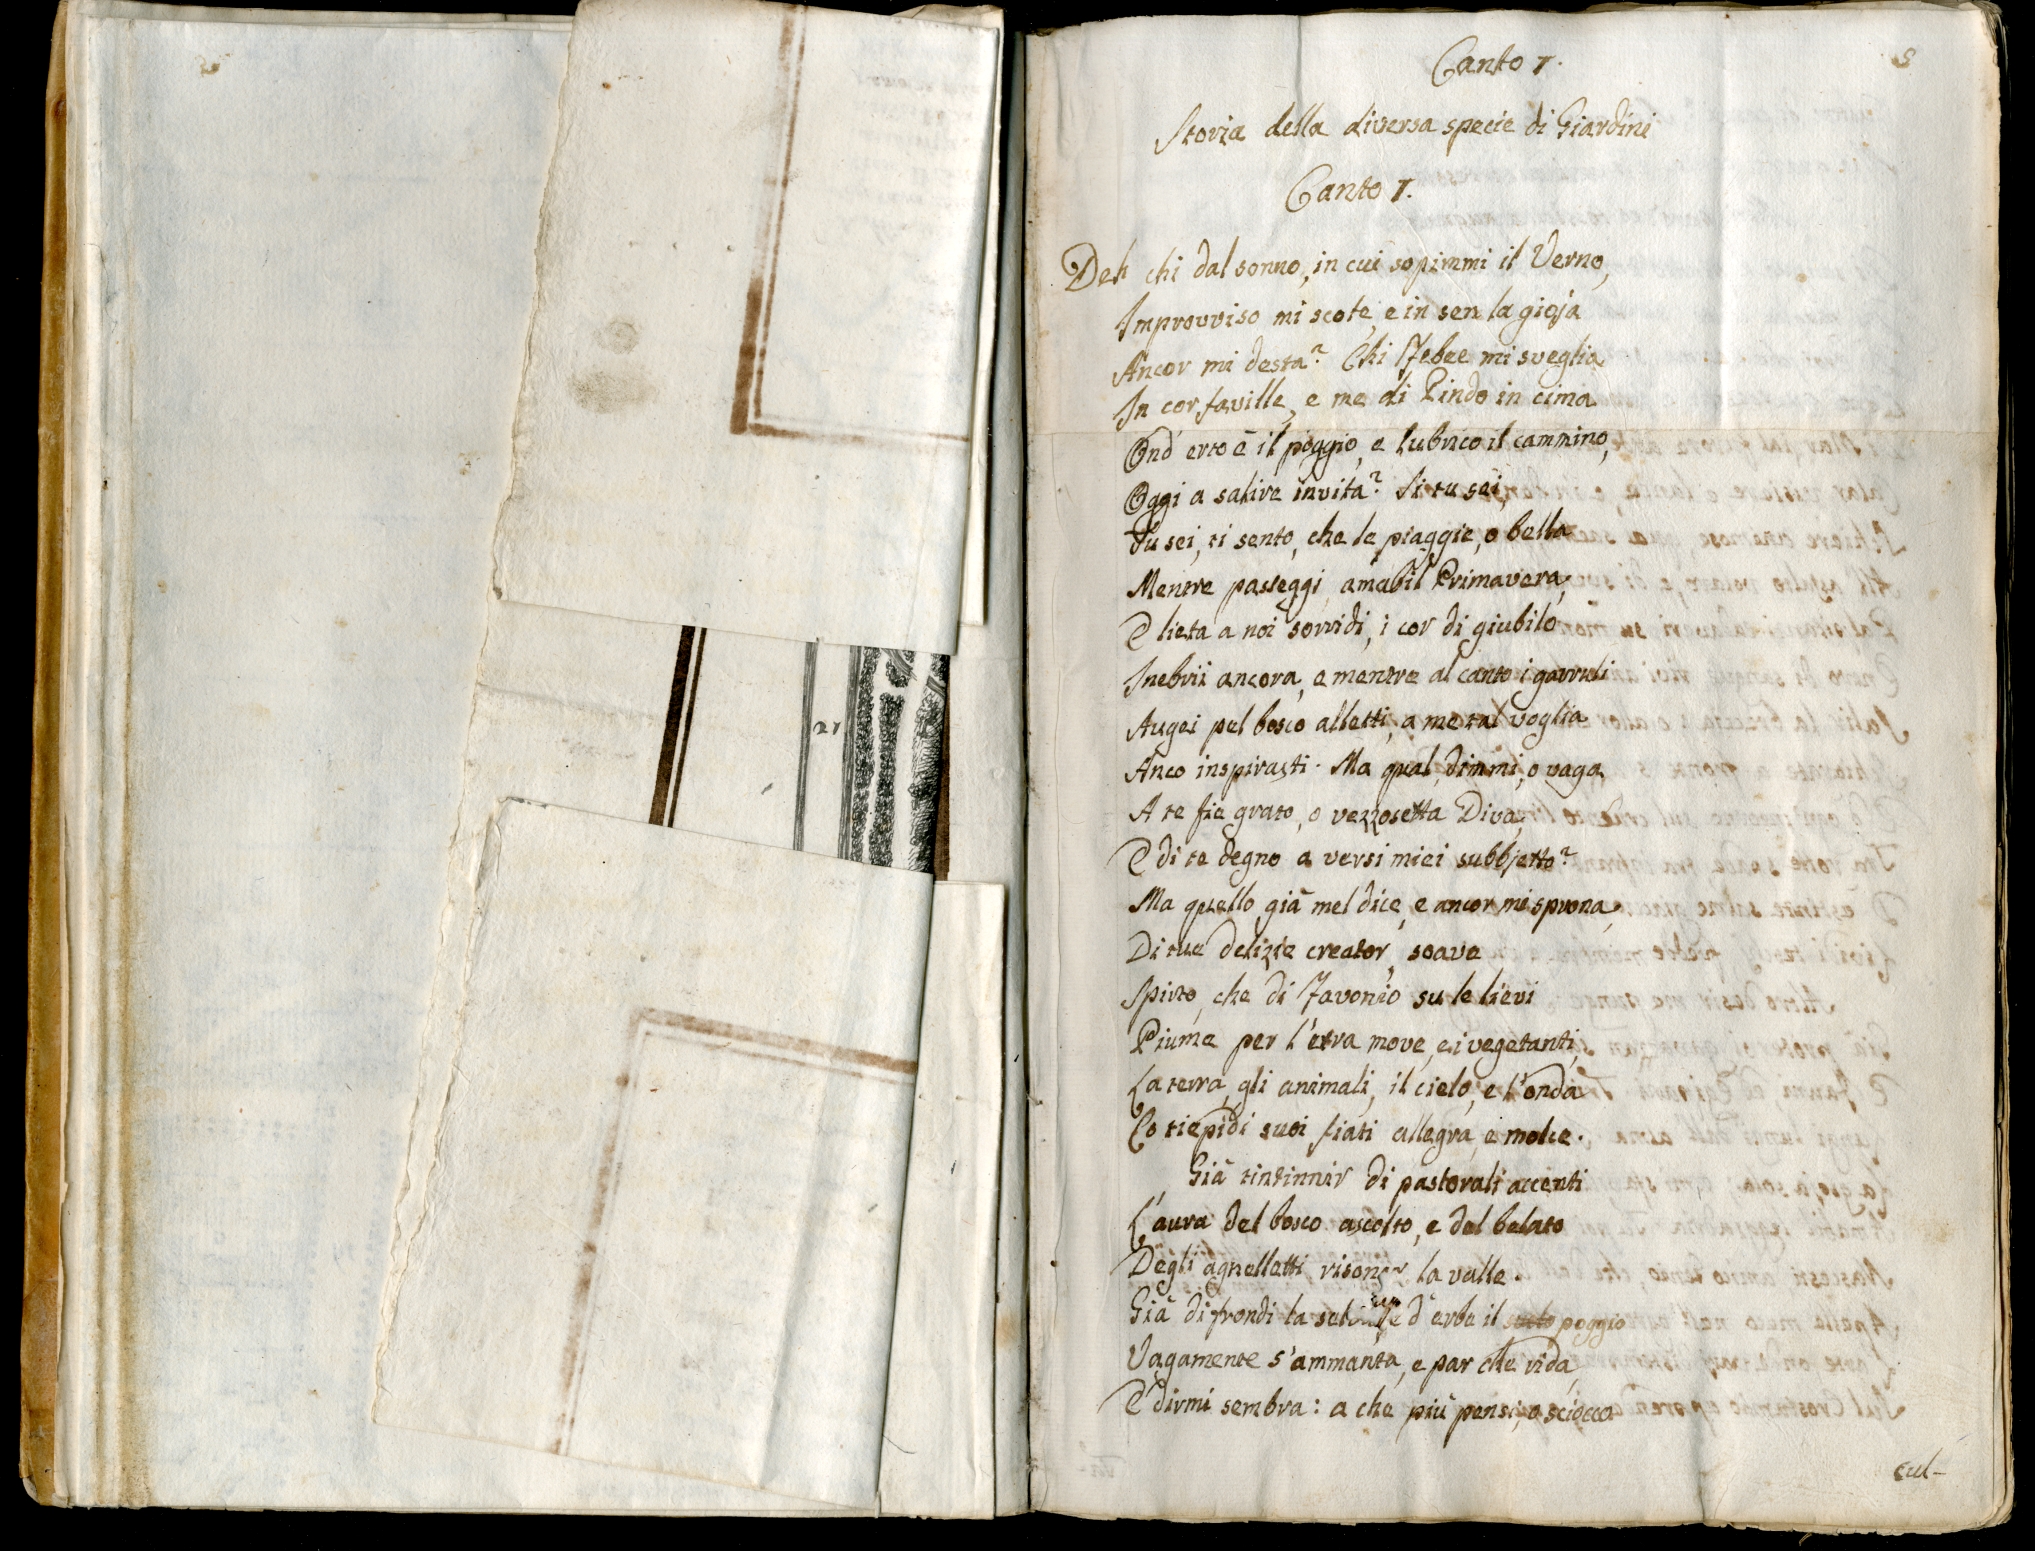 21
Canto I.
Storia della diversa specie di Giardini
Canto I.
Deh chi dal sonno, in cui sopimmi il Verno,
Improvviso mi scote, e in sen la gioja
Ancor mi desta? Chi Febee mi sveglia
In cor faville, e me di Pindo in cima
Ond' erto è il poggio, e lubrico il cammino,
Oggi a salire invita? Sì tu sei,
Tu sei, ti sento, che le piaggie, o bella
Mentre passeggi, amabil Primavera,
E lieta a noi sorridi, i cor di giubilo
Inebrii ancora, e mentre al canto i garruli
Augei pel bosco alletti, a me tal voglia
Anco inspirasti. Ma qual, dimmi, o vaga
A te fia grato, o vezzosetta Diva,
E di te degno a versi miei subbjetto?
Ma quello già mel dice, e ancor mi sprona,
Di tue delizie creator, soave
Spirto, che di Favonio su le lievi
Piume per l'etra move, e i vegetanti,
La terra, gli animali, il cielo, e l'onda
Co tiepidi suoi fiati allegra, e molce.
Già tintinnir di pastorali accenti
L'aura del bosco ascolto, e del belato
Degli agnelletti risonar la valle.
Già di frondi la selva, e d'erbe il poggio
Vagamente s'ammanta, e par che rida,
E dirmi sembra: a che più pensi, o sciocco
cul-